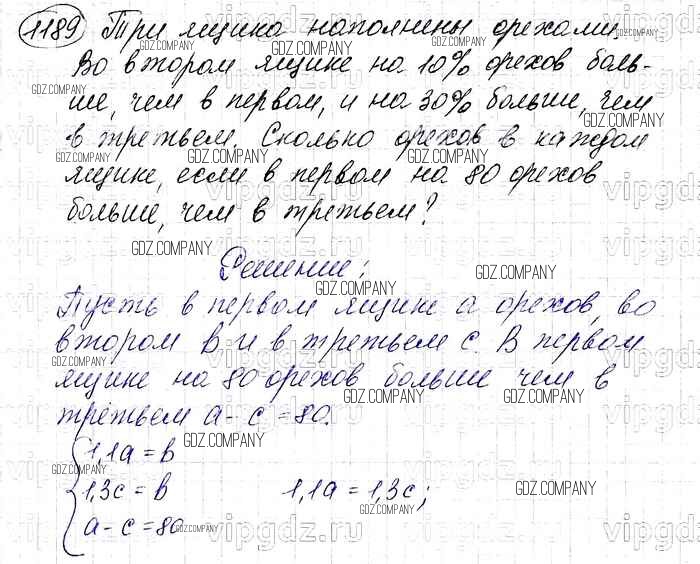 1189 Три ящика наполнены орехами.
Во втором ящике на 10% орехов боль-
ше, чем в первом, и на 30% больше, чем
в третьем. Сколько орехов в каждом
ящике, если в первом на 80 орехов
больше, чем в третьем?
Решение:
Пусть в первом ящике a орехов, во
втором в и в третьем c. В первом
ящике на 80 орехов больше чем в
третьем a - c = 80.
1,1a = в
1,3c = в 1,1a = 1,3c;
a - c = 80
GDZ.COMPANY
vipgdz.ru